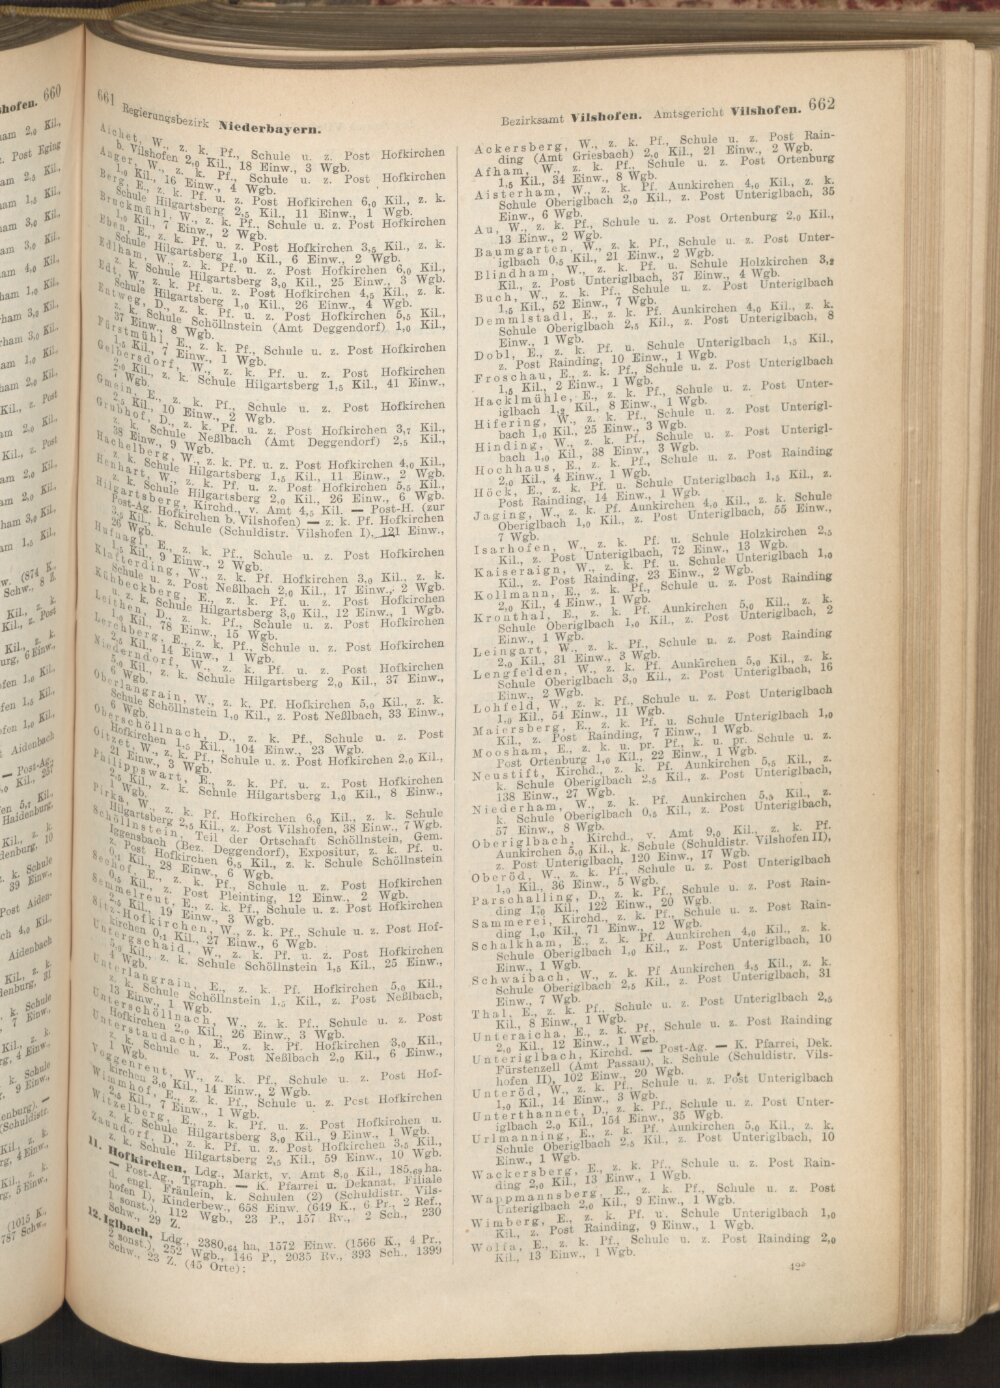 661 Regierungsbezirk Niederbayern.
Aichet, W., z. k. Pf., Schule u. z. Post Hofkirchen
b. Vilshofen 2,0 Kil., 18 Einw., 3 Wgb.
Anger, W., z. k. Pf., Schule u. z. Post Hofkirchen
1,0 Kil., 16 Einw., 4 Wgb.
Berg, E., z. k. Pf. u. z. Post Hofkirchen 6,0 Kil., z. k.
Schule Hilgartsberg 2,5 Kil., 11 Einw., 1 Wgb.
Bruckmühl, W., z. k. Pf., Schule u. z. Post Hofkirchen
1,0 Kil., 7 Einw., 2 Wgb.
Eben, E., z. k. Pf. u. z. Post Hofkirchen 3,5 Kil., z. k.
Schule Hilgartsberg 1,0 Kil., 6 Einw., 2 Wgb.
Edlham, W., z. k. Pf. u. z. Post Hofkirchen 6,0 Kil.,
z. k. Schule Hilgartsberg 3,0 Kil., 25 Einw., 3 Wgb.
Edt, W., z. k. Pf. u. z. Post Hofkirchen 4,5 Kil., z. k.
Schule Hilgartsberg 1,0 Kil., 26 Einw., 4 Wgb.
Entweg, D., z. k. Pf. u. z. Post Hofkirchen 5,5 Kil.,
z. k. Schule Schöllnstein (Amt Deggendorf) 1,0 Kil.,
37 Einw., 8 Wgb.
Fürstmühl, E., z. k. Pf., Schule u. z. Post Hofkirchen
1,5 Kil., 7 Einw., 1 Wgb.
Gelbersdorf, W., z. k. Pf. u. z. Post Hofkirchen
2,0 Kil., z. k. Schule Hilgartsberg 1,5 Kil., 41 Einw.,
7 Wgb.
Gmein, E., z. k. Pf., Schule u. z. Post Hofkirchen
2,5 Kil., 10 Einw., 2 Wgb.
Grubhof, D., z. k. Pf. u. z. Post Hofkirchen 3,7 Kil.,
z. k. Schule Neßlbach (Amt Deggendorf) 2,5 Kil.,
38 Einw., 9 Wgb.
Hachelberg, W., z. k. Pf. u. z. Post Hofkirchen 4,0 Kil.,
z. k. Schule Hilgartsberg 1,5 Kil., 11 Einw., 2 Wgb.
Henhart, W., z. k. Pf. u. z. Post Hofkirchen 5,5 Kil.,
z. k. Schule Hilgartsberg 2,0 Kil., 26 Einw., 6 Wgb.
Hilgartsberg, Kirchd., v. Amt 4,5 Kil. — Post-H. (zur
Post-Ag. Hofkirchen b. Vilshofen) — z. k. Pf. Hofkirchen
3,0 Kil., k. Schule (Schuldistr. Vilshofen I), 121 Einw.,
26 Wgb.
Hufnagl, E., z. k. Pf., Schule u. z. Post Hofkirchen
1,5 Kil., 9 Einw., 2 Wgb.
Klafterding, W., z. k. Pf. Hofkirchen 3,0 Kil., z. k.
Schule u. z. Post Neßlbach 2,0 Kil., 17 Einw., 2 Wgb.
Kühbeckberg, E., z. k. Pf. u. z. Post Hofkirchen
u. z. k. Schule Hilgartsberg 3,0 Kil., 12 Einw., 1 Wgb.
Leithen, D., z. k. Pf., Schule u. z. Post Hofkirchen
1,0 Kil., 78 Einw., 15 Wgb.
Lerchberg, E., z. k. Pf., Schule u. z. Post Hofkirchen
2,5 Kil., 14 Einw., 1 Wgb.
Niederndorf, W., z. k. Pf. u. z. Post Hofkirchen
5,0 Kil., z. k. Schule Hilgartsberg 2,0 Kil., 37 Einw.,
6 Wgb.
Oberlangrain, W., z. k. Pf. Hofkirchen 5,0 Kil., z. k.
Schule Schöllnstein 1,0 Kil., z. Post Neßlbach, 33 Einw.,
6 Wgb.
Oberschöllnach, D., z. k. Pf., Schule u. z. Post
Hofkirchen 1,5 Kil., 104 Einw., 23 Wgb.
Oitzet, W., z. k. Pf., Schule u. z. Post Hofkirchen 2,0 Kil.,
21 Einw., 3 Wgb.
Philippswart, E., z. k. Pf. u. z. Post Hofkirchen
2,5 Kil., z. k. Schule Hilgartsberg 1,0 Kil., 8 Einw.,
1 Wgb.
Pirka, W., z. k. Pf. Hofkirchen 6,0 Kil., z. k. Schule
Hilgartsberg 2,5 Kil., z. Post Vilshofen, 38 Einw., 7 Wgb.
Schöllnstein, Teil der Ortschaft Schöllnstein, Gem.
Iggensbach (Bez. Deggendorf), Expositur, z. k. Pf. u.
z. Post Hofkirchen 6,5 Kil., z. k. Schule Schöllnstein
0,1 Kil., 28 Einw., 6 Wgb.
Seehof, E., z. k. Pf., Schule u. z. Post Hofkirchen
0,5 Kil., z. Post Pleinting, 12 Einw., 2 Wgb.
Semmelreut, E., z. k. Pf., Schule u. z. Post Hofkirchen
2,5 Kil., 19 Einw., 3 Wgb.
Sitz-Hofkirchen, W., z. k. Pf., Schule u. z. Post Hof-
kirchen 0,1 Kil., 27 Einw., 6 Wgb.
Untergschaid, W., z. k. Pf. u. z. Post Hofkirchen
5,0 Kil., z. k. Schule Schöllnstein 1,5 Kil., 25 Einw.,
4 Wgb.
Unterlangrain, E., z. k. Pf. Hofkirchen 5,0 Kil.,
z. k. Schule Schöllnstein 1,5 Kil., z. Post Neßlbach,
13 Einw., 1 Wgb.
Unterschöllnach, W., z. k. Pf., Schule u. z. Post
Hofkirchen 2,0 Kil., 26 Einw., 3 Wgb.
Unterstaudach, E., z. k. Pf. Hofkirchen 3,0 Kil.,
z. k. Schule u. z. Post Neßlbach 2,0 Kil., 6 Einw.,
1 Wgb.
Voggenreut, W., z. k. Pf., Schule u. z. Post Hof-
kirchen 3,0 Kil., 14 Einw., 2 Wgb.
Wimmhof, E., z. k. Pf., Schule u. z. Post Hofkirchen
2,5 Kil., 7 Einw., 1 Wgb.
Witzelberg, E., z. k. Pf. u. z. Post Hofkirchen u.
z. k. Schule Hilgartsberg 3,0 Kil., 9 Einw., 1 Wgb.
Zaundorf, D., z. k. Pf. u. z. Post Hofkirchen 3,5 Kil.,
z. k. Schule Hilgartsberg 2,5 Kil., 59 Einw., 10 Wgb.
11. Hofkirchen, Ldg., Markt, v. Amt 8,0 Kil., 185,69 ha.
— Post-Ag., Tgraph. — K. Pfarrei u. Dekanat, Filiale
d. engl. Fräulein, k. Schulen (2) (Schuldistr. Vils-
hofen I), Kinderbew., 658 Einw. (649 K., 6 Pr., 2 Ref.,
1 sonst.), 112 Wgb., 23 P., 157 Rv., 2 Sch., 230
Schw., 29 Z.
12. Iglbach, Ldg., 2380,64 ha, 1572 Einw. (1566 K., 4 Pr.,
2 sonst.), 252 Wgb., 146 P., 2035 Rv., 393 Sch., 1399
Schw., 23 Z. (45 Orte):
Bezirksamt Vilshofen. Amtsgericht Vilshofen. 662
Ackersberg, W., z. k. Pf., Schule u. z. Post Rain-
ding (Amt Griesbach) 2,0 Kil., 21 Einw., 2 Wgb.
Afham, W., z. k. Pf., Schule u. z. Post Ortenburg
1,5 Kil., 34 Einw., 8 Wgb.
Aisterham, W., z. k. Pf. Aunkirchen 4,0 Kil., z. k.
Schule Oberiglbach 2,0 Kil., z. Post Unteriglbach, 35
Einw., 6 Wgb.
Au, W., z. k. Pf., Schule u. z. Post Ortenburg 2,0 Kil.,
13 Einw., 2 Wgb.
Baumgarten, W., z. k. Pf., Schule u. z. Post Unter-
iglbach 0,5 Kil., 21 Einw., 2 Wgb.
Blindham, W., z. k. Pf. u. Schule Holzkirchen 3,2
Kil., z. Post Unteriglbach, 37 Einw., 4 Wgb.
Buch, W., z. k. Pf., Schule u. z. Post Unteriglbach
1,5 Kil., 52 Einw., 7 Wgb.
Demmlstadl, E., z. k. Pf. Aunkirchen 4,0 Kil., z. k.
Schule Oberiglbach 2,5 Kil., z. Post Unteriglbach, 8
Einw., 1 Wgb.
Dobl, E., z. k. Pf. u. Schule Unteriglbach 1,5 Kil.,
z. Post Rainding, 10 Einw., 1 Wgb.
Froschau, E., z. k. Pf., Schule u. z. Post Unteriglbach
1,5 Kil., 2 Einw., 1 Wgb.
Hacklmühle, E., z. k. Pf., Schule u. z. Post Unter-
iglbach 1,2 Kil., 8 Einw., 1 Wgb.
Hifering, W., z. k. Pf., Schule u. z. Post Unterigl-
bach 1,0 Kil., 25 Einw., 3 Wgb.
Hinding, W., z. k. Pf., Schule u. z. Post Unterigl-
bach 1,0 Kil., 38 Einw., 3 Wgb.
Hochhaus, E., z. k. Pf., Schule u. z. Post Rainding
2,0 Kil., 4 Einw., 1 Wgb.
Höck, E., z. k. Pf. u. Schule Unteriglbach 1,5 Kil., z.
Post Rainding, 14 Einw., 1 Wgb.
Jaging, W., z. k. Pf. Aunkirchen 4,0 Kil., z. k. Schule
Oberiglbach 1,0 Kil., z. Post Unteriglbach, 55 Einw.,
7 Wgb.
Isarhofen, W., z. k. Pf. u. Schule Holzkirchen 2,5
Kil., z. Post Unteriglbach, 72 Einw., 13 Wgb.
Kaiseraign, W., z. k. Pf. u. Schule Unteriglbach 1,0
Kil., z. Post Rainding, 23 Einw., 2 Wgb.
Kollmann, E., z. k. Pf., Schule u. z. Post Rainding
2,0 Kil., 4 Einw., 1 Wgb.
Kronthal, E., z. k. Pf. Aunkirchen 5,0 Kil., z. k.
Schule Oberiglbach 1,0 Kil., z. Post Unteriglbach, 2
Einw., 1 Wgb.
Leingart, W., z. k. Pf., Schule u. z. Post Rainding
2,0 Kil., 31 Einw., 3 Wgb.
Lengfelden, W., z. k. Pf. Aunkirchen 5,0 Kil., z. k.
Schule Oberiglbach 3,0 Kil., z. Post Unteriglbach, 16
Einw., 2 Wgb.
Lohfeld, W., z. k. Pf., Schule u. z. Post Unteriglbach
1,0 Kil., 54 Einw., 11 Wgb.
Maiersberg, E., z. k. Pf. u. Schule Unteriglbach 1,0
Kil., z. Post Rainding, 7 Einw., 1 Wgb.
Moosham, E., z. k. u. pr. Pf., k. u. pr. Schule u. z.
Post Ortenburg 1,0 Kil., 22 Einw., 1 Wgb.
Neustift, Kirchd., z. k. Pf. Aunkirchen 5,5 Kil., z.
k. Schule Oberiglbach 2,5 Kil., z. Post Unteriglbach,
138 Einw., 27 Wgb.
Niederham, W., z. k. Pf. Aunkirchen 5,5 Kil., z.
k. Schule Oberiglbach 0,5 Kil., z. Post Unteriglbach,
57 Einw., 8 Wgb.
Oberiglbach, Kirchd., v. Amt 9,0 Kil., z. k. Pf.
Aunkirchen 5,0 Kil., k. Schule (Schuldistr. Vilshofen II),
z. Post Unteriglbach, 120 Einw., 17 Wgb.
Oberöd, W., z. k. Pf., Schule u. z. Post Unteriglbach
1,0 Kil., 36 Einw., 5 Wgb.
Parschalling, D., z. k. Pf., Schule u. z. Post Rain-
ding 1,0 Kil., 122 Einw., 20 Wgb.
Sammerei, Kirchd., z. k. Pf., Schule u. z. Post Rain-
ding 1,0 Kil., 71 Einw., 12 Wgb.
Schalkham, E., z. k. Pf. Aunkirchen 4,0 Kil., z. k.
Schule Oberiglbach 1,0 Kil., z. Post Unteriglbach, 10
Einw., 1 Wgb.
Schwaibach, W., z. k. Pf Aunkirchen 4,5 Kil., z. k.
Schule Oberiglbach 2,5 Kil., z. Post Unteriglbach, 31
Einw., 7 Wgb.
Thal, E., z. k. Pf., Schule u. z. Post Unteriglbach 2,5
Kil., 8 Einw., 1 Wgb.
Unteraicha, E., z. k. Pf., Schule u. z. Post Rainding
2,0 Kil., 12 Einw., 1 Wgb.
Unteriglbach, Kirchd. — Post-Ag. — K. Pfarrei, Dek.
Fürstenzell (Amt Passau), k. Schule (Schuldistr. Vils-
hofen II), 102 Einw., 20 Wgb.
Unteröd, W., z. k. Pf., Schule u. z. Post Unteriglbach
1,0 Kil., 14 Einw., 3 Wgb.
Unterthannet, D., z. k. Pf., Schule u. z. Post Unter-
iglbach 2,0 Kil., 154 Einw., 35 Wgb.
Urlmanning, E., z. k. Pf. Aunkirchen 5,0 Kil., z. k.
Schule Oberiglbach 2,5 Kil., z. Post Unteriglbach, 10
Einw., 1 Wgb.
Wackersberg, E., z. k. Pf., Schule u. z. Post Rain-
ding 2,0 Kil., 13 Einw., 1 Wgb.
Wappmannsberg, E., z. k. Pf., Schule u. z. Post
Unteriglbach 2,0 Kil., 9 Einw., 1 Wgb.
Wimberg, E., z. k. Pf. u. Schule Unteriglbach 1,0
Kil., z. Post Rainding, 9 Einw., 1 Wgb.
Wolfa, E., z. k. Pf., Schule u. z. Post Rainding 2,0
Kil., 13 Einw., 1 Wgb.
42*